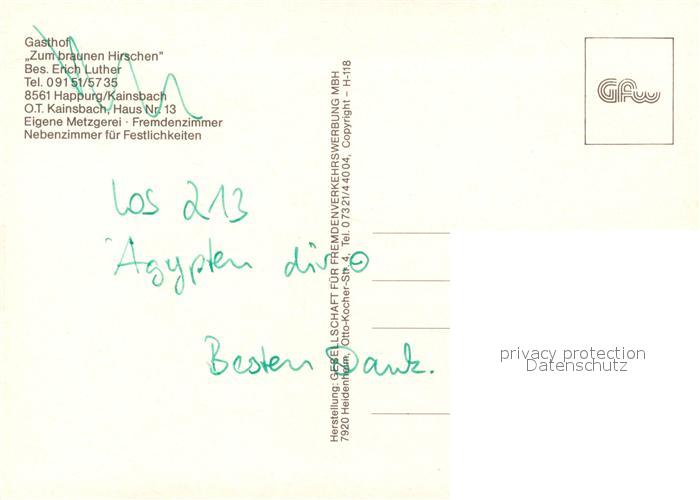 Gasthof
„Zum braunen Hirschen"
Bes. Erich Luther
Tel. 09151/5735
8561 Happurg/Kainsbach
O.T. Kainsbach, Haus Nr. 13
Eigene Metzgerei · Fremdenzimmer
Nebenzimmer für Festlichkeiten
Herstellung: GESELLSCHAFT FÜR FREMDENVERKEHRSWERBUNG MBH
7920 Heidenheim, Otto-Kocher-Str. 4, Tel. 07321/44004, Copyright – H-118
GFW
Los 213
Ägypten div.
Besten Dank.
privacy protection
Datenschutz